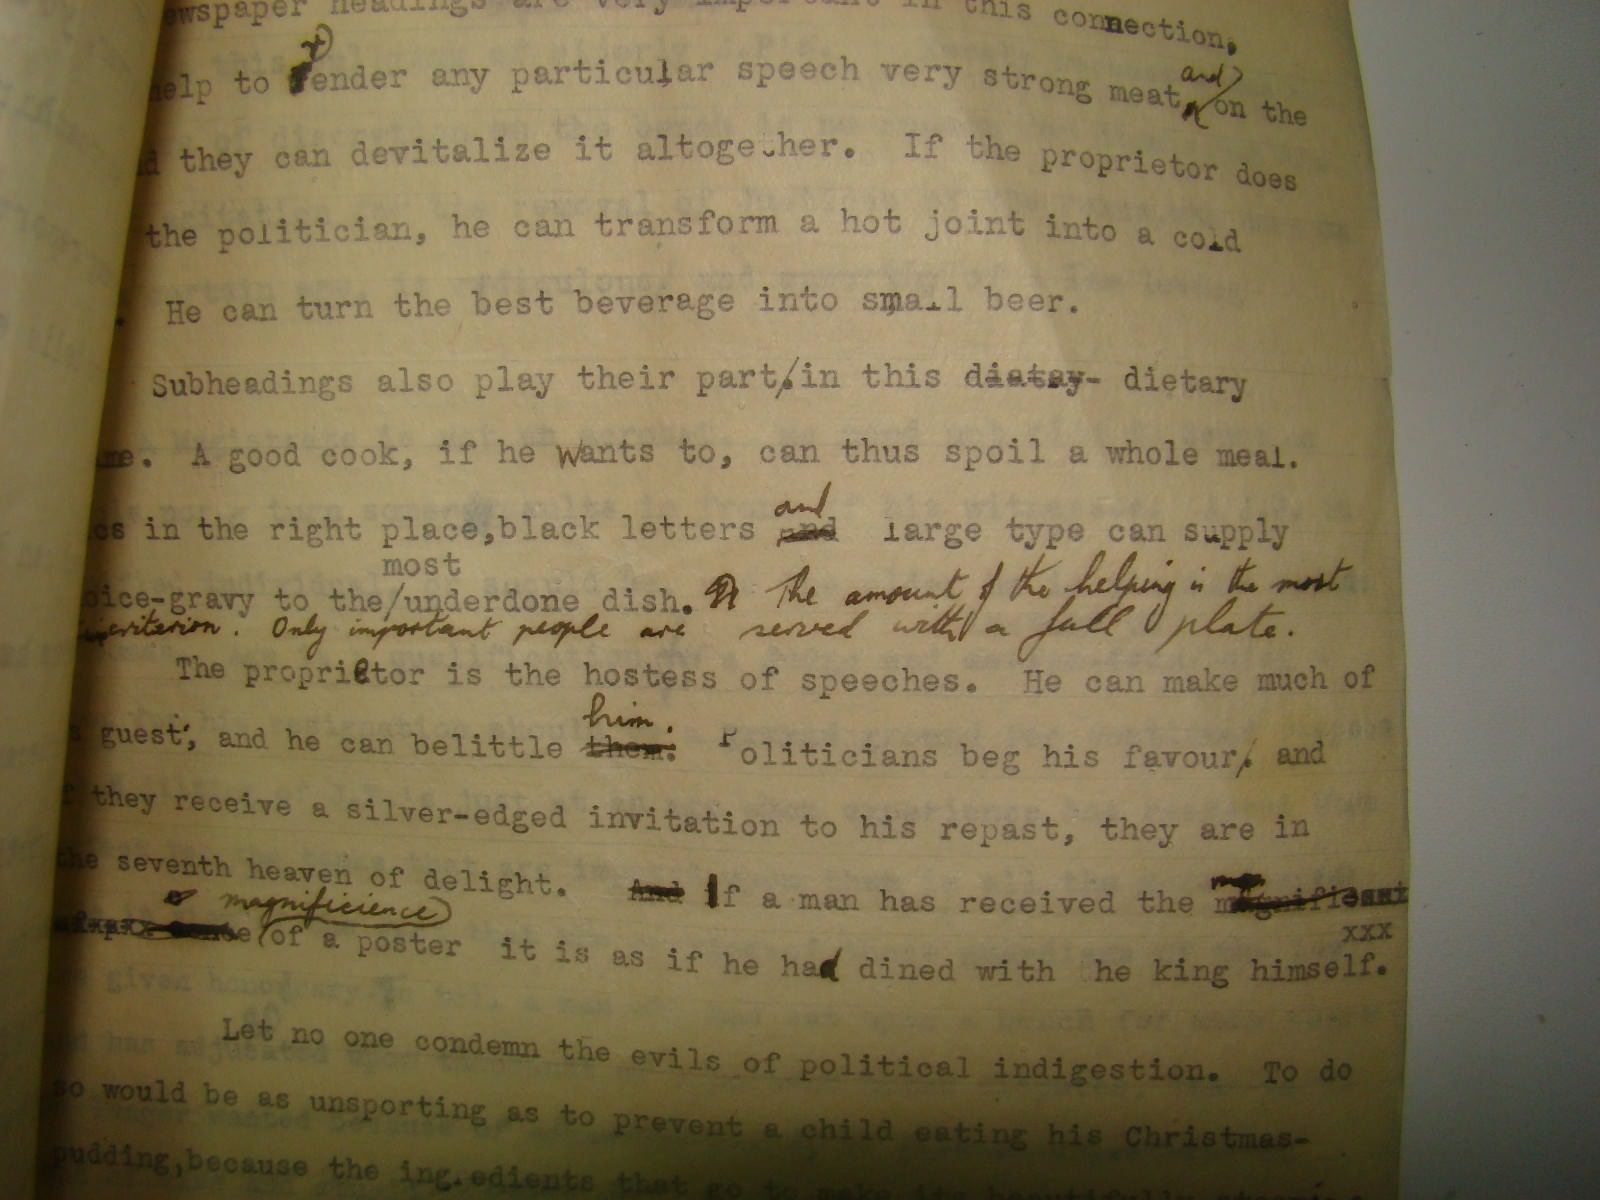 ewspaper headings are very important in this connection,
help to render any particular speech very strong meat, and on the
they can devitalize it altogether. If the proprietor does
the politician, he can transform a hot joint into a cold
. He can turn the best beverage into small beer.
Subheadings also play their part in this diatay- dietary
me. A good cook, if he wants to, can thus spoil a whole meal.
and
cs in the right place, black letters and large type can supply
most
oice-gravy to the/underdone dish. The amount of the helping is the most
criterion. Only important people are served with a full plate.
The proprietor is the hostess of speeches. He can make much of
s guest, and he can belittle them: him. Politicians beg his favour, and
f they receive a silver-edged invitation to his repast, they are in
the seventh heaven of delight. And If a man has received the magnificent
magnificience
of a poster it is as if he had dined with he king himself.
xxx
Let no one condemn the evils of political indigestion. To do
so would be as unsporting as to prevent a child eating his Christmas-
pudding, because the ing.edients that go to make its beautifully